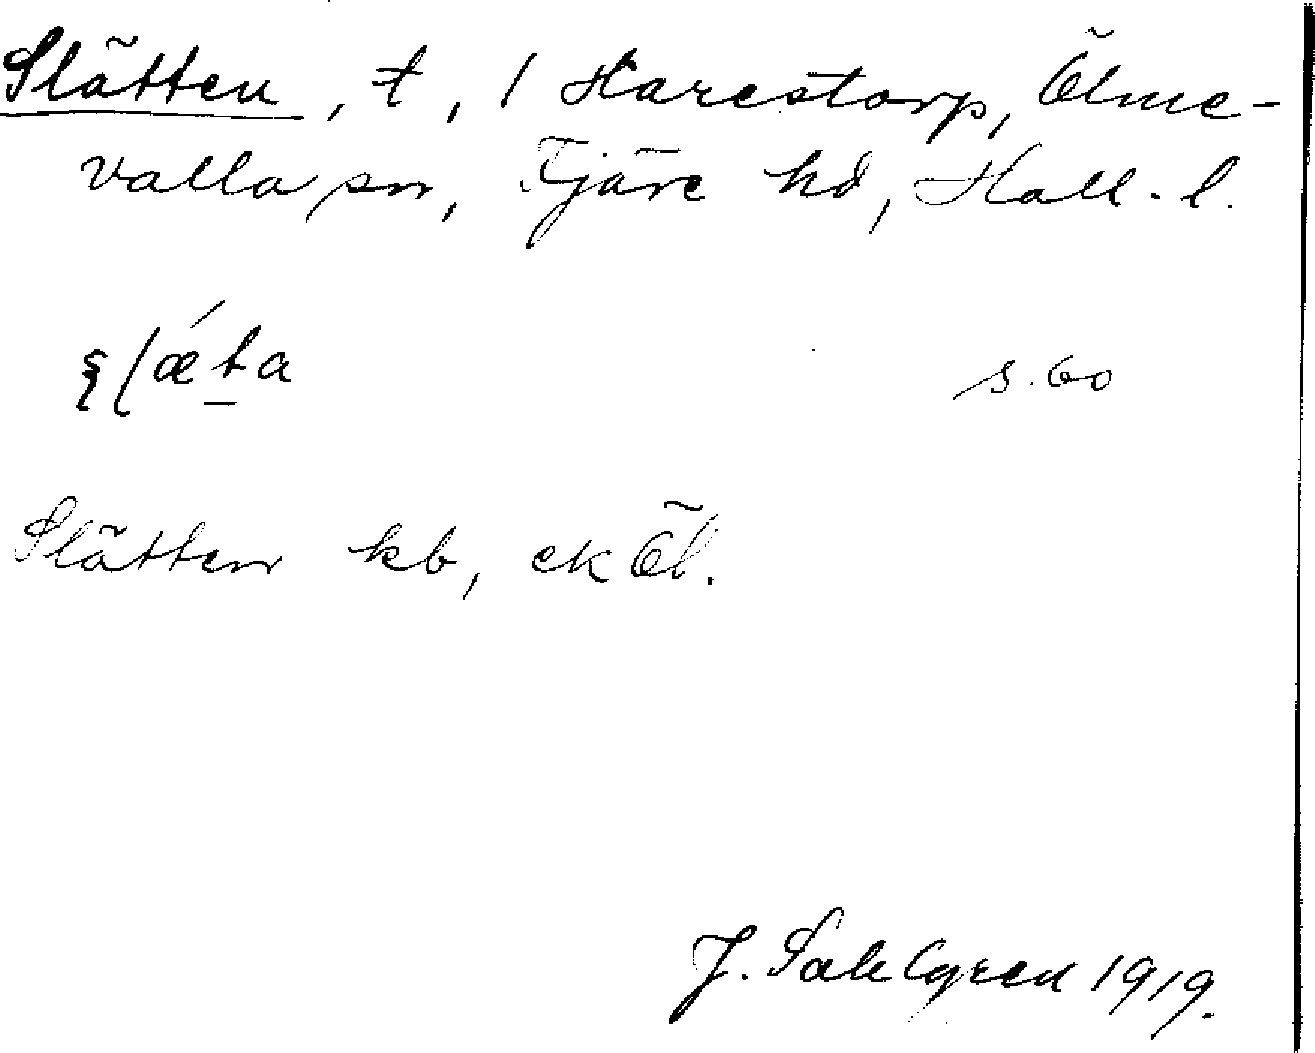 Slätten, t, 1 Harestorp, Ölme-
valla sn, Fjäre hd, Hall. l.
s. 60
Slätten kb, ek Öl.
J. Sahlgren 1919.